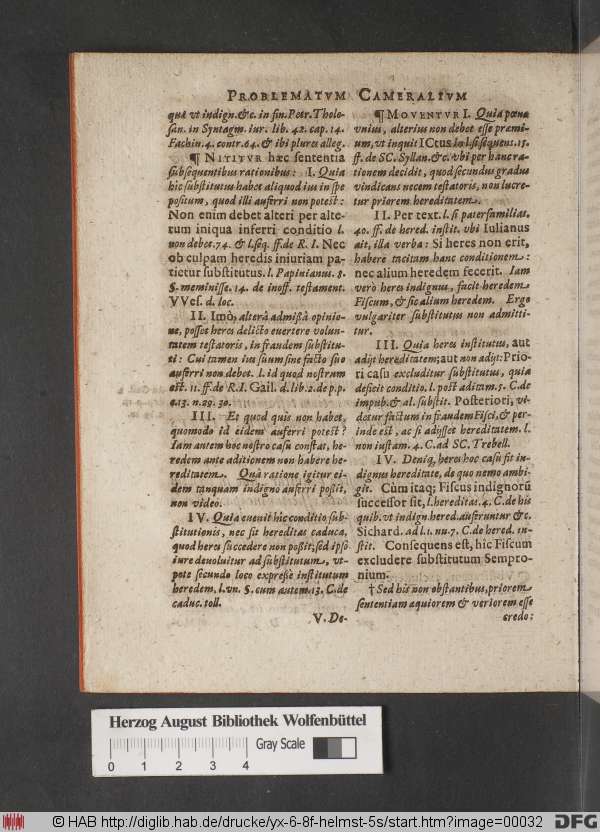 PROBLEMATVM CAMERALIVM
quâ vt indign. &c. in fin. Petr. Tholo-
san. in Syntagm. iur. lib. 42. cap. 14.
Fachin. 4. contr. 64. & ibi plures alleg.
¶ NITITVR hæc sententia
subsequentibus rationibus: I. Quia
hic substitutus habet aliquod ius in spe
positum, quod illi auferri non potest:
Non enim debet alteri per alte-
rum iniqua inferri conditio l.
non debet. 74. & l. seq. ff. de R. I. Nec
ob culpam heredis iniuriam pa-
tietur substitutus. l. Papinianus. 8.
§. meminisse. 14. de inoff. testament.
VVes. d. loc.
II. Imò, alterâ admißâ opinio-
ne, posset heres delicto euertere volun-
tatem testatoris, in fraudem substitu-
ti: Cui tamen ius suum sine facto suo
auferri non debet. l. id quod nostrum
est. 11. ff. de R. I. Gail. d. lib. 2. de p. p.
c. 13. n. 29. 30.
III. Et quod quis non habet,
quomodo id eidem auferri potest?
Iam autem hoc nostro casu constat, he-
redem ante aditionem non habere he-
reditatem. Quâ ratione igitur ei-
dem tanquam indigno auferri poßit,
non video.
IV. Quia euenit hîc conditio sub-
stitutionis, nec fit hereditas caduca,
quod heres succedere non poßit; sed ipsò
iure deuoluitur ad substitutum, vt-
pote secundo loco expresè institutum
heredem. l. vn. §. cum autem. 13. C. de
caduc. toll.
V. De-
¶ MOVENTVR I. Quia pœna
vnius, alterius non debet esse præmi-
um, vt inquit ICtus in l. si sequens. 15.
ff. de SC. Syllan. &c. vbi per hanc ra-
tionem decidit, quod secundus gradus
vindicans necem testatoris, non lucre-
tur priorem hereditatem.
II. Per text. l. si paterfamilias.
40. ff. de hered. instit. vbi Iulianus
ait, illa verba: Si heres non erit,
habere tacitam hanc conditionem:
nec alium heredem fecerit. Iam
verò heres indignus, facit heredem
Fiscum, & sic alium heredem. Ergo
vulgariter substitutus non admitti-
tur.
III. Quia heres institutus, aut
adijt hereditatem; aut non adijt: Prio-
ri casu excluditur substitutus, quia
deficit conditio. l. post aditam. 5. C. de
impub. & al. substit. Posteriori, vi-
detur factum in fraudem Fisci, & per-
inde est, ac si adijsset hereditatem. l.
non iustam. 4. C. ad SC. Trebell.
IV. Deniq, heres hoc casu fit in-
dignus hereditate, de quo nemo ambi-
git. Cùm itaq; Fiscus indignorũ
successor sit, l. hereditas. 4. C. de his
quib. vt indign. hered. auferuntur &c.
Sichard. ad l. 1. nu. 7. C. de hered. in-
stit. Consequens est, hîc Fiscum
excludere substitutum Sempro-
nium.
† Sed his non obstantibus, priorem
sententiam æquiorem & veriorem esse
credo:
Herzog August Bibliothek Wolfenbüttel
Gray Scale
0 1 2 3 4
© HAB http://diglib.hab.de/drucke/yx-6-8f-helmst-5s/start.htm?image=00032
DFG